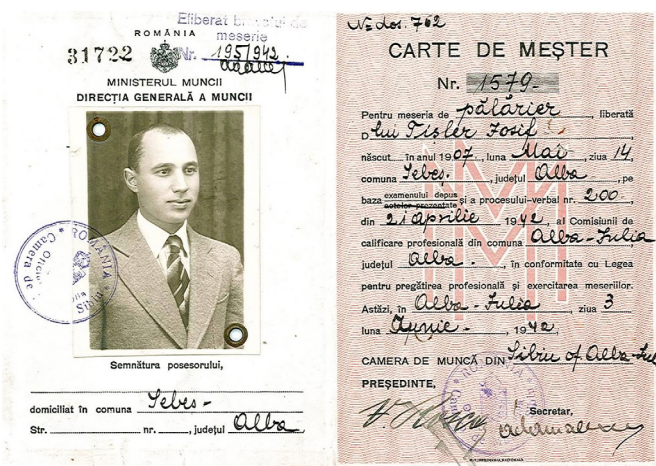 Eliberat
ROMÂNIA
meserie
31722
Nr. 195/942.
MINISTERUL MUNCII
DIRECȚIA GENERALĂ A MUNCII
ROMÂNIA
Camera de
Semnătura posesorului,
domiciliat în comuna Sebeș-
Str. nr. , județul Alba
No dos. 762
CARTE DE MEȘTER
Nr. 1579-
Pentru meseria de pălărier, liberată
D lui Tișler Iosif
născut în anul 1907, luna Mai, ziua 14,
comuna Sebeș, județul Alba, pe
baza examenului depus
actelor prezentate și a procesului-verbal nr. 200
din 21 aprilie 1942, al Comisiunii de
calificare profesională din comuna Alba-Iulia
județul Alba-, în conformitate cu Legea
pentru pregătirea profesională și exercitarea meseriilor.
Astăzi, în Alba-Iulia, ziua 3
luna Iunie-, 1942,
CAMERA DE MUNCĂ DIN Sibiu of. Alba-Iul
PREȘEDINTE,
Secretar,